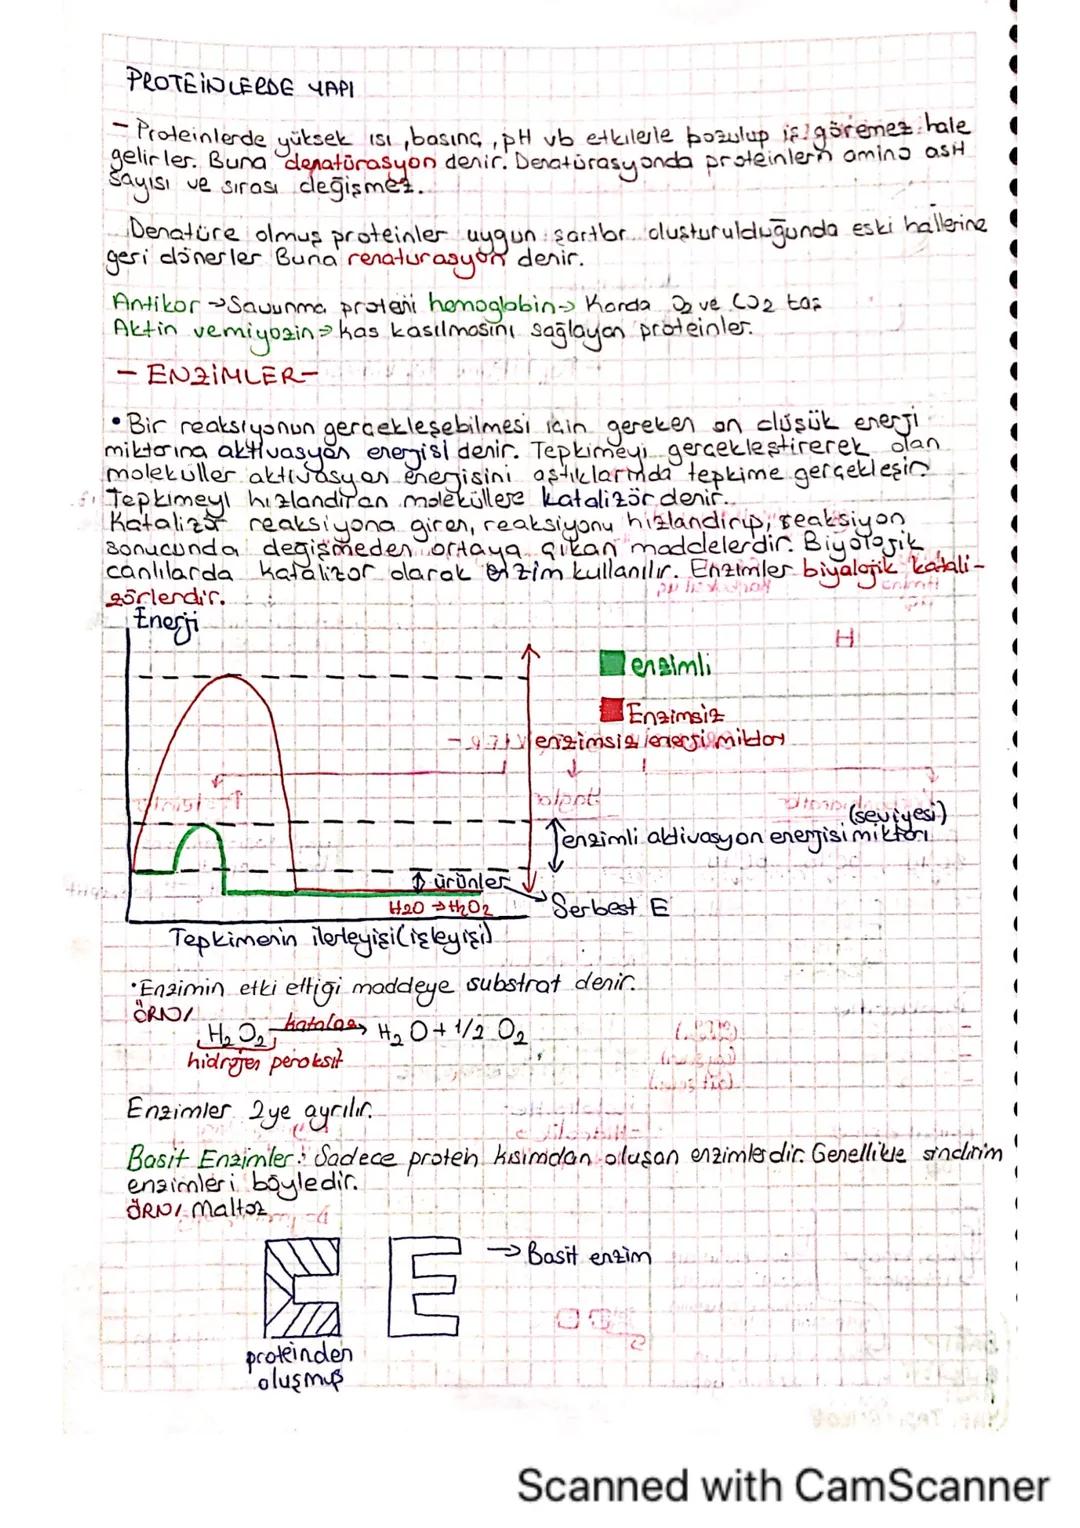 PROTEİNLERDE YAPI
- Proteinlerde yüksek ısı, basınç, pH vb etkilerle bozulup iş göremez hale
gelirler. Buna denatürasyon denir. Denatürasyonda proteinlerin amino asit
sayısı ve sırası değişmez.
Denatüre olmuş proteinler uygun şartlar oluşturulduğunda eski hallerine
geri dönerler Buna renaturasyon denir.
Antikor → Savunma proteni hemoglobin → Kanda O2 ve CO2 taş
Aktin ve miyozin → kas kasılmasını sağlayan proteinler.
- ENZİMLER -
• Bir reaksiyonun gerçekleşebilmesi için gereken en düşük enerji
miktarına aktivasyon enerjisi denir. Tepkimeyi gerçekleştirerek olan
moleküller aktivasyon enerjisini aştıklarında tepkime gerçekleşir.
Tepkimeyi hızlandıran moleküllere katalizör denir.
Katalizör reaksiyona giren, reaksiyonu hızlandırıp, reaksiyon
sonucunda değişmeden ortaya çıkan maddelerdir. Biyolojik
canlılarda katalizor olarak enzim kullanılır. Enzimler biyalojik katali-
zörlerdir.
Enerji
enzimli
Enzimsiz
enzimsiz enerji miktarı
(seviyesi)
enzimli aktivasyon enerjisi miktarı
ürünler
H2O → H2O2
Serbest E
Tepkimenin ilerleyişi (işleyişi)
• Enzimin etki ettiği maddeye substrat denir.
ÖRN/
H2O2 katalaz → H2O + 1/2 O2
hidrojen peroksit
Enzimler 2ye ayrılır.
Basit Enzimler: Sadece protein kısımdan oluşan enzimlerdir. Genellikle sindirim
enzimleri böyledir.
ÖRN/ Maltaz
→ Basit enzim
proteinden
oluşmuş
Scanned with CamScanner